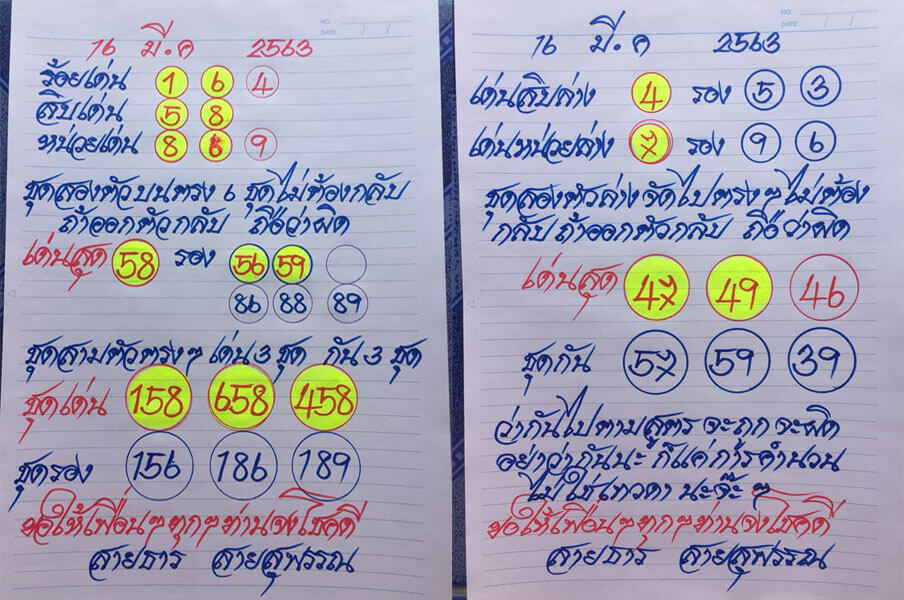 NO.
DATE / /
16 มี.ค 2563
ร้อยเด่น 1 6 4
สิบเด่น 5 8
หน่วยเด่น 8 6 9
ชุดสองตัวบนตรง 6 ชุดไม่ต้องกลับ
ถ้าออกตัวกลับ ถือว่าผิด
เด่นสุด 58 รอง 56 59
86 88 89
ชุดสามตัวตรงๆ เด่น 3 ชุด กัน 3 ชุด
ชุดเด่น 158 658 458
ชุดรอง 156 186 189
ขอให้เพื่อนๆทุกๆท่านจงโชคดี
สายธาร สายสุพรรณ
NO.
DATE / /
16 มี.ค 2563
เด่นสิบล่าง 4 รอง 5 3
เด่นหน่วยล่าง 7 รอง 9 6
ชุดสองตัวล่างจัดไปตรงๆไม่ต้อง
กลับถ้าออกตัวกลับ ถือว่าผิด
เด่นสุด 47 49 46
ชุดกัน 57 59 39
ว่ากันไปตามสูตร จะถูก จะผิด
อย่าว่ากันนะ ก็แค่การคำนวน
ไม่ใช่เทวดา นะจ๊ะ ๆ
ขอให้เพื่อนๆทุกๆท่านจงโชคดี
สายธาร สายสุพรรณ